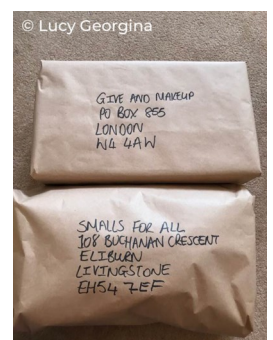 © Lucy Georgina
GIVE AND MAKEUP
PO BOX 855
LONDON
W4 4AW
SMALLS FOR ALL
108 BUCHANAN CRESCENT
ELIBURN
LIVINGSTONE
EH54 7EF